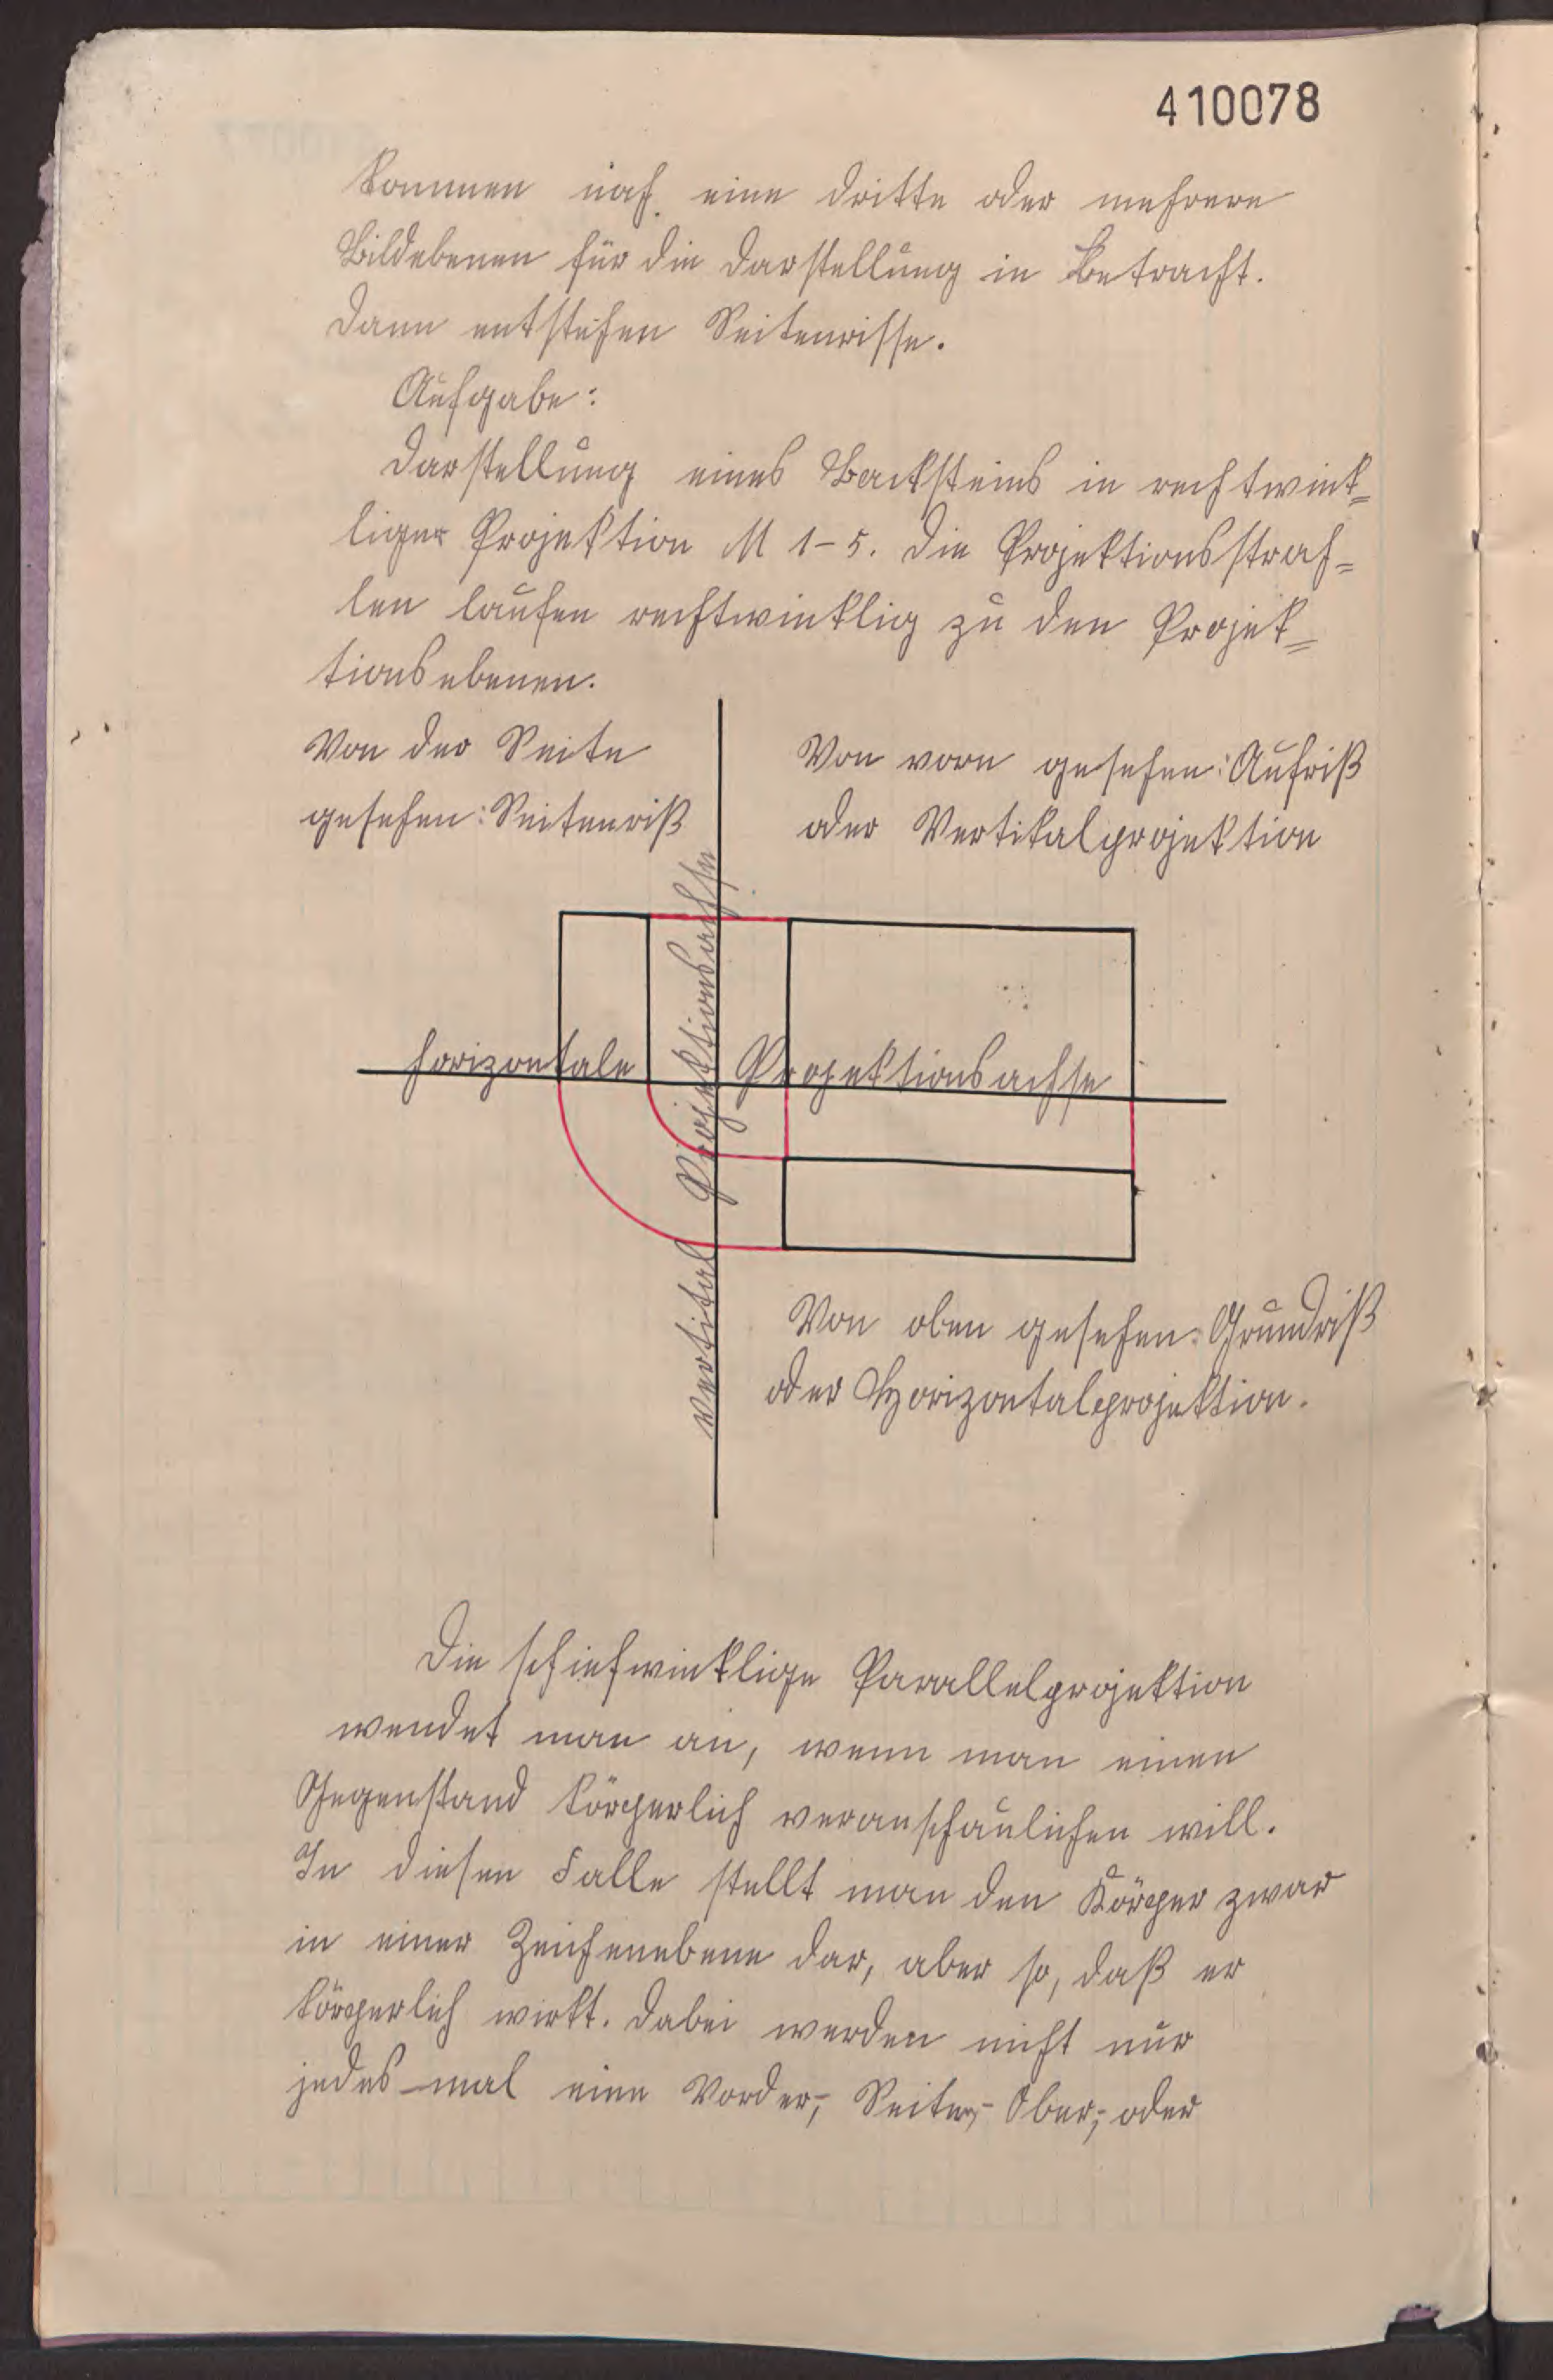 410078
kommen noch eine dritte oder mehrere
Bildebenen für die Darstellung in Betracht.
Dann entstehen Seitenrisse.
Aufgabe:
Darstellung eines Backsteins in rechtwink=
liger Projektion M 1-5. Die Projektionsstrah=
len laufen rechtwinklig zu den Projek=
tionsebenen.
Von der Seite
gesehen: Seitenriß
Von vorn gesehen: Aufriß
oder Vertikalprojektion
horizontale Projektionsachse
vertikal Projektionsachse
Von oben gesehen: Grundriß
oder Horizontalprojektion.
Die schiefwinklige Parallelprojektion
wendet man an, wenn man einen
Gegenstand körperlich veranschaulichen will.
In diesen Falle stellt man den Körper zwar
in einer Zeichenebene dar, aber so, daß er
körperlich wirkt. Dabei werden nicht nur
jedes-mal eine Vorder-, Seiten-, Ober-, oder